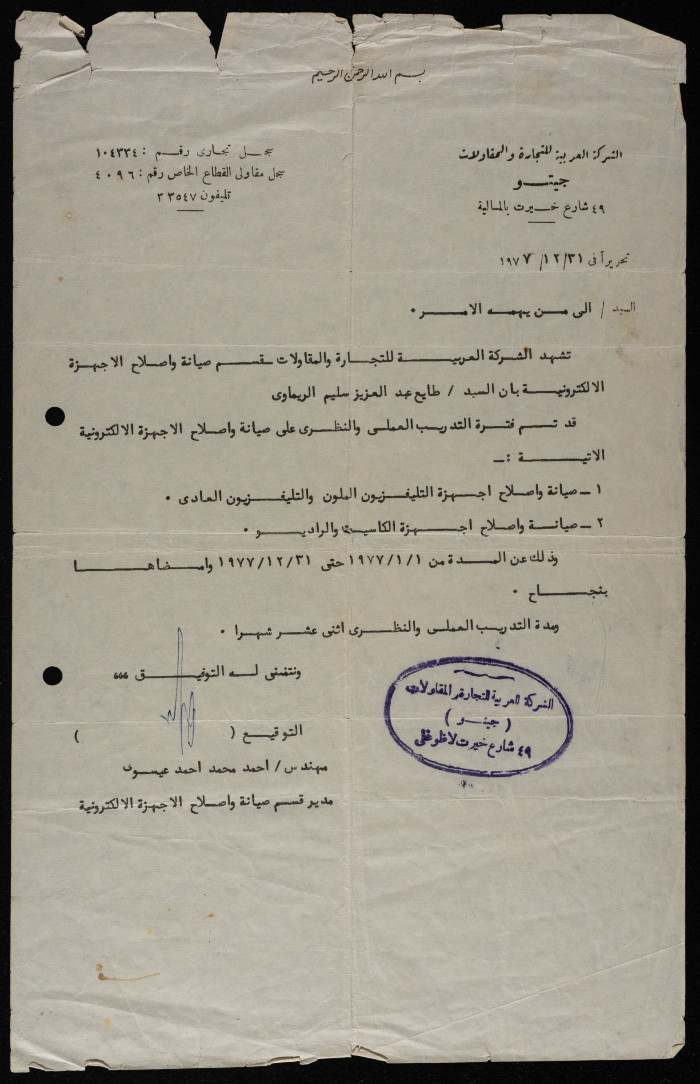 بسم الله الرحمن الرحيم
الشركة العربية للتجارة والمقاولات
جيتـــو
٤٩ شارع خــيرت بالمالية
سجــل تجارى رقــم : ١٠٤٣٣٤
سجل مقاولى القطاع الخاص رقم : ٤٠٩٦
تليفون ٣٣٥٤٧
تحريرا فى ٣١/١٢/١٩٧٧
السيد / الى مــن يهمــه الامــر ٠
تشهد الشركة العربيــة للتجــارة والمقاولات ــ قســم صيانة واصلاح الاجهزة
الالكترونيــة بان السيد / طايع عبد العزيز سليم الريماوى
قد تــم فتــرة التدريب العملــى والنظــرى على صيانة واصلاح الاجهزة الالكترونية
الاتيــة :ــ
١ ــ صيانة واصلاح اجهــزة التليفــزيون الملون والتليفــزيون العادى ٠
٢ ــ صيانــة واصلاح اجهــزة الكاسيت والراديــو ٠
وذلك عن المــدة من ١٩٧٧/١/١ حتى ١٩٧٧/١٢/٣١ وامضاهــا
بنجــاح ٠
ومدة التدريب العملــى والنظــرى اثنى عشــر شهرا ٠
ونتمنى لــه التوفيــق ،،،
التوقيــع ( )
مهندس / احمد محمد احمد عيسوى
مدير قسم صيانة واصلاح الاجهزة الالكترونية
الشركة العربية للتجارة والمقاولات
( جيتــو )
٤٩ شارع خيرت لاظوغلى